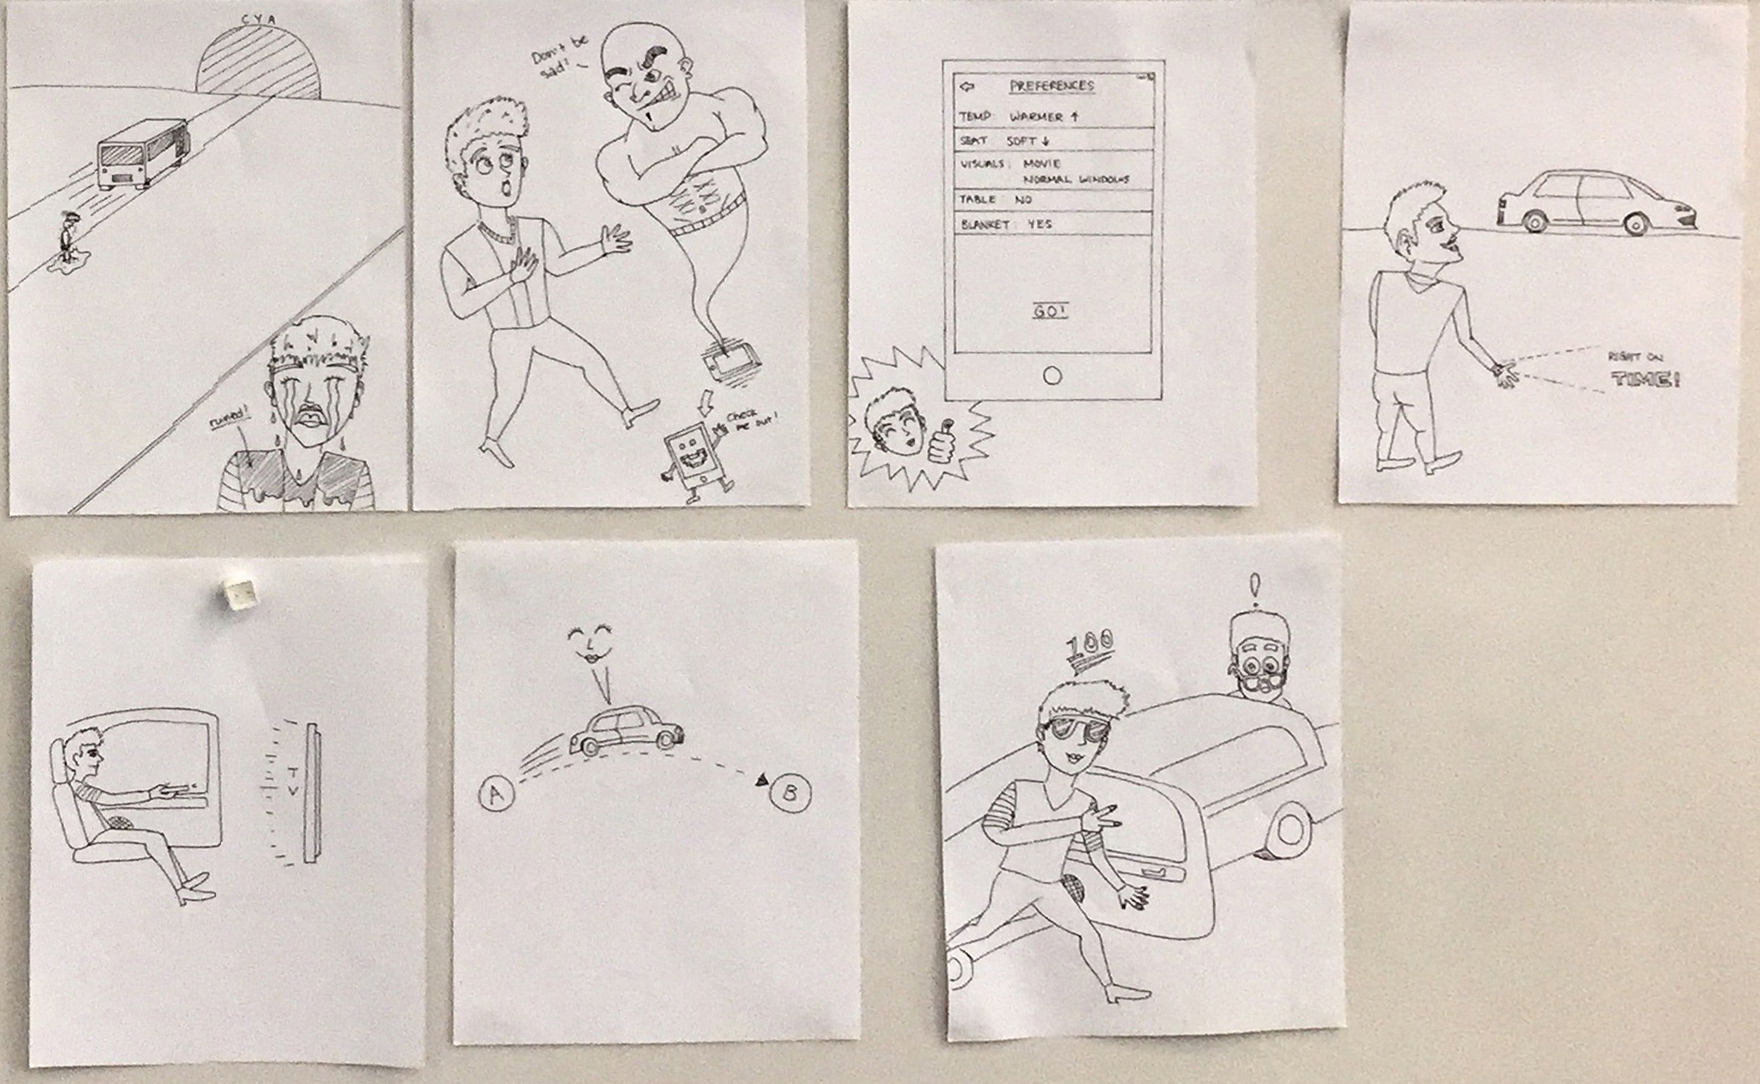 CYA
ruined!
Don't be
sad!
Check
me out!
PREFERENCES
TEMP: WARMER ↑
SEAT SOFT ↓
VISUALS: MOVIE
NORMAL WINDOWS
TABLE NO
BLANKET: YES
GO!
RIGHT ON
TIME!
TV
A
B
100
!